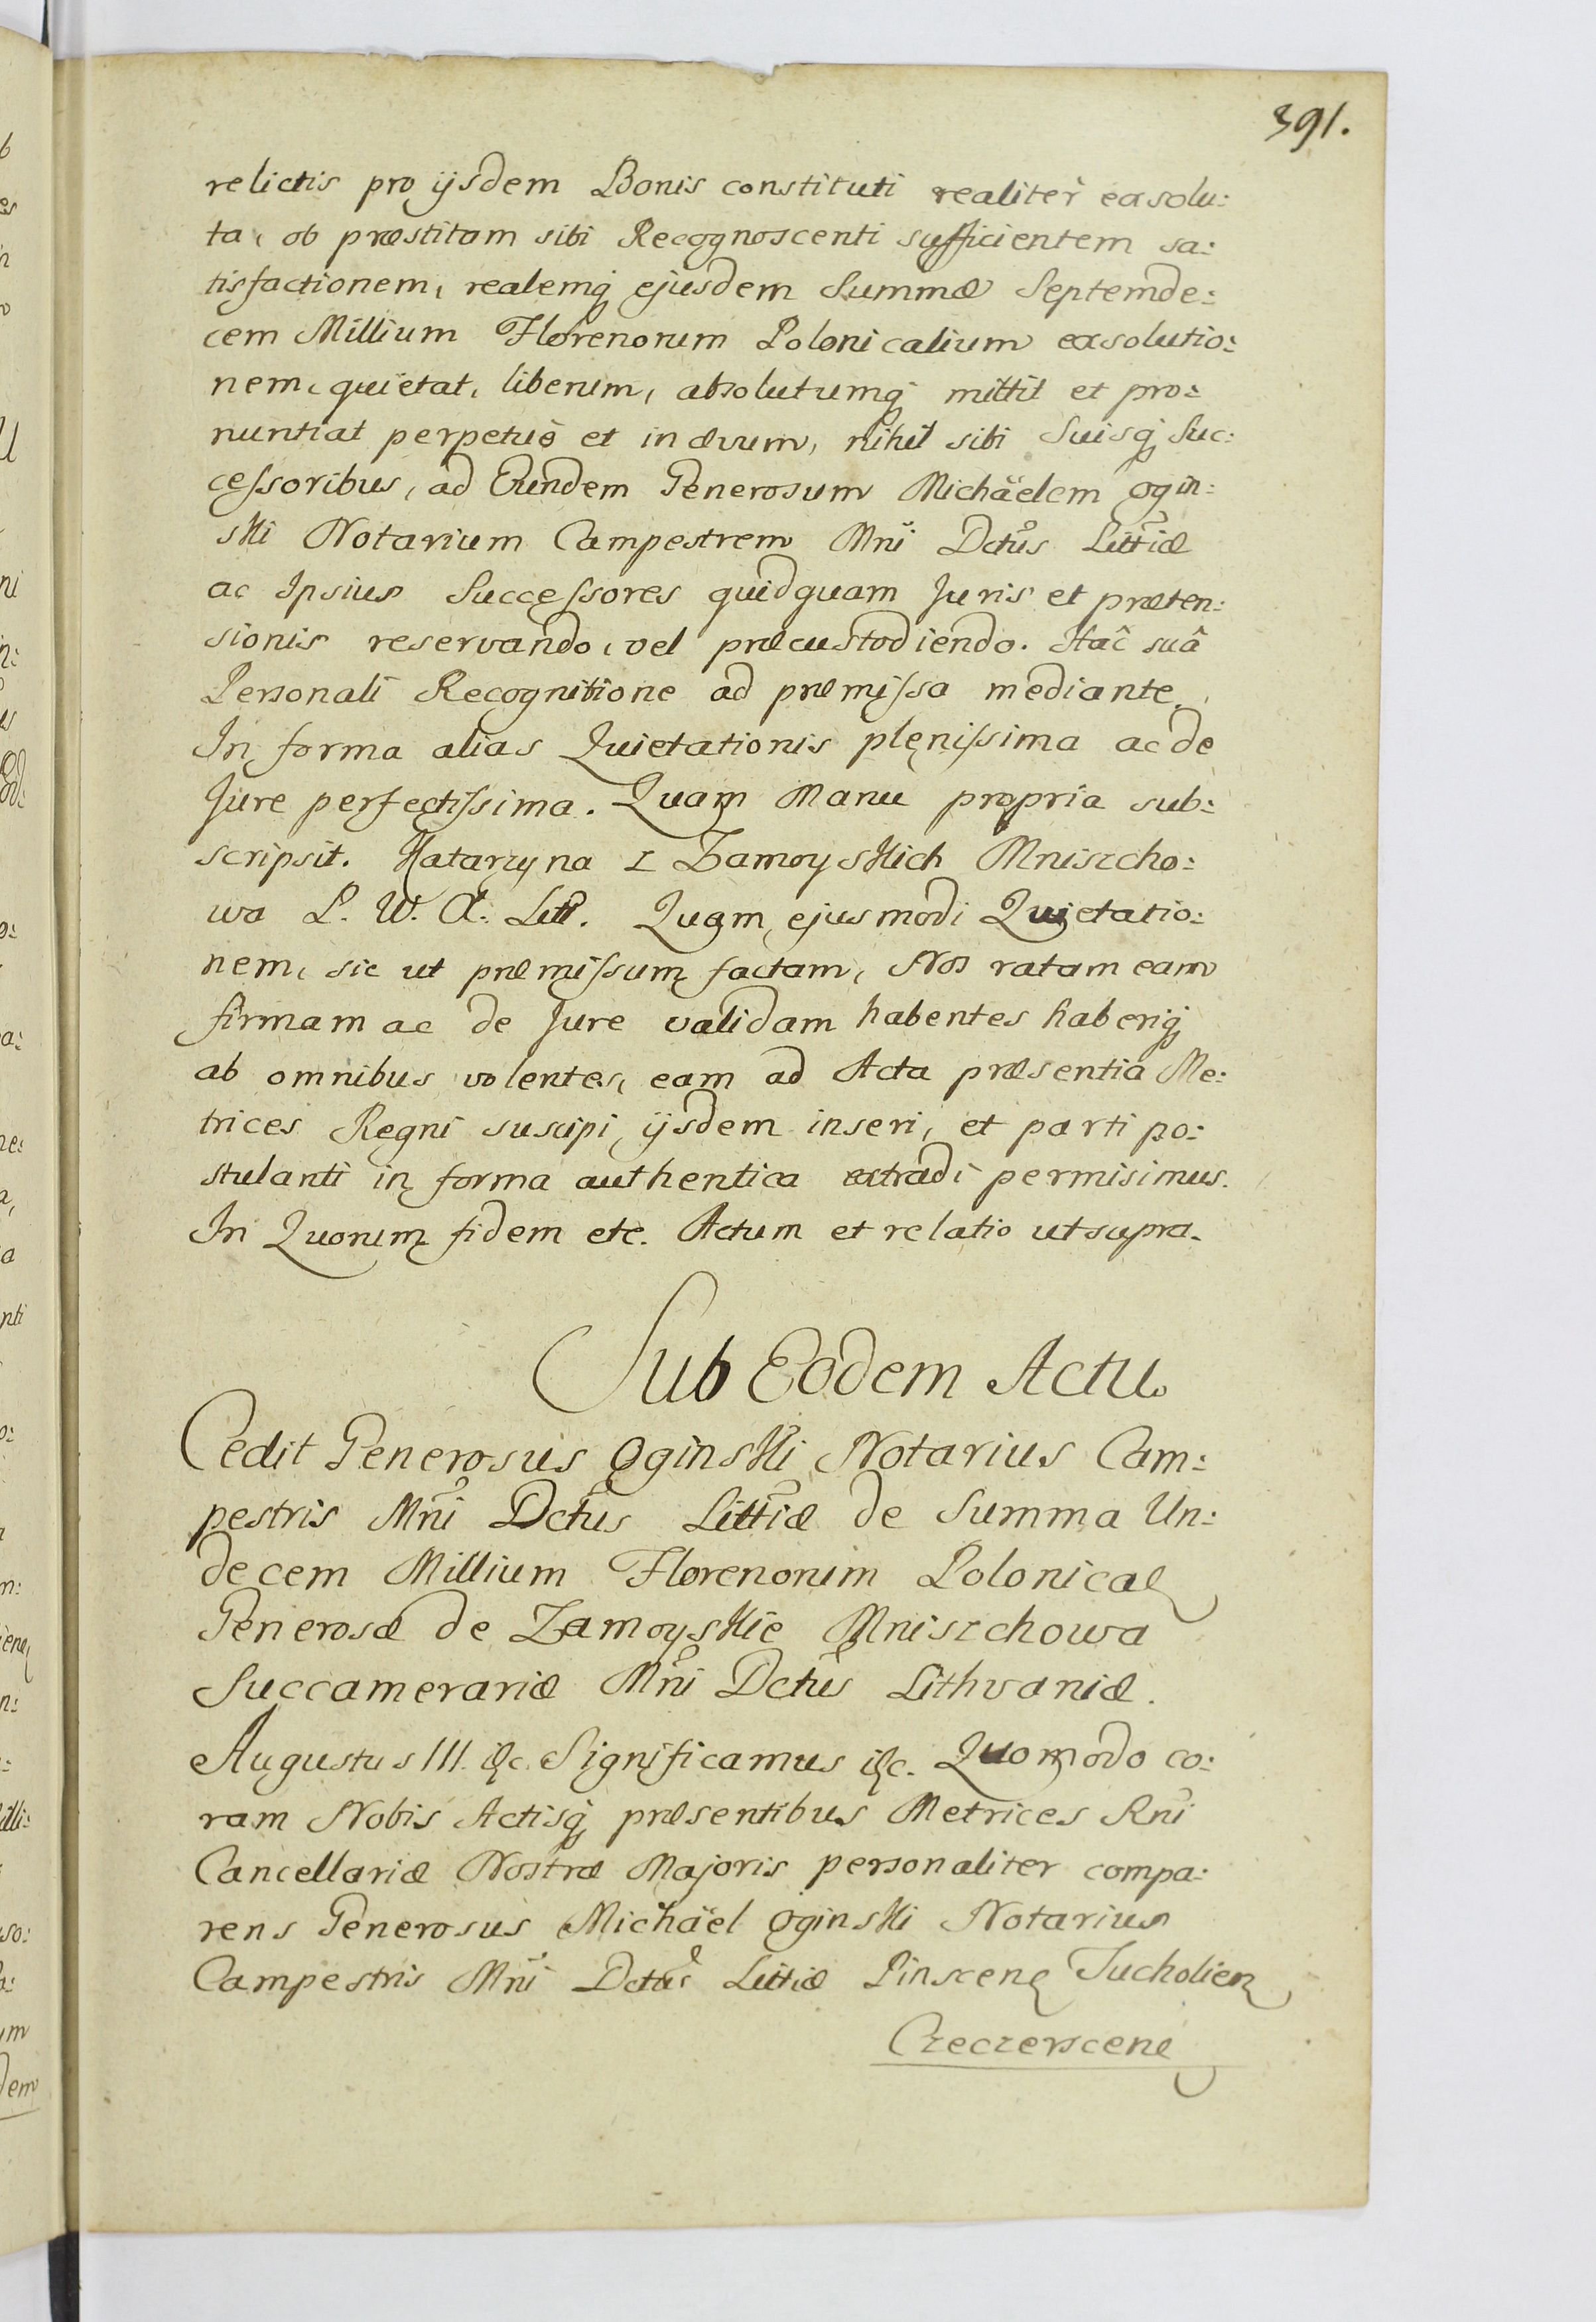 391.
relictis pro ijsdem Bonis constituti realiter exsolu:
ta, ob præstitam sibi Recognoscenti sufficientem sa:
tisfactionem, realemq; ejusdem Summæ Septemde:
cem Millium Florenorum Polonicalium exsolutio:
nem, quietat, liberum, absolutumq; mittit et pro:
nuntiat perpetuò et in ævum, nihil sibi Suisq; Suc:
cessoribus, ad Eundem Generosum Michäelem Ogin:
ski Notarium Campestrem Mni Dctus Littiæ
ac Ipsius Successores quidquam Juris et præten:
sionis reservando, vel præcustodiendo. Hac suâ
Personali Recognitione ad præmissa mediante.
In forma alias Quietationis plenissima ac de
Jure perfectissima. Quam Manu propria sub:
scripsit. Katarzyna z Zamoyskich Mniszcho:
wa P. W. X: Litt. Quam ejusmodi Quietatio:
nem, sic ut præmissum factam, Nos ratam eam
firmam ac de Jure validam habentes haberiq;
ab omnibus volentes, eam ad Acta præsentia Me:
trices Regni suscipi, ijsdem inseri, et parti po:
stulanti in forma authentica extradi permisimus.
In Quorum fidem etc. Actum et relatio ut supra.
Sub Eodem Actu
Cedit Generosus Oginski Notarius Cam:
pestris Mni Dctus Littiæ de Summa Un:
decem Millium Florenorum Polonical
Generosæ de Zamoyskie Mniszchowa
Succamerariæ Mni Dctus Lithvaniæ.
Augustus III. &c. Significamus &c. Quomodo co:
ram Nobis Actisq; præsentibus Metrices Rni
Cancellariæ Nostræ Majoris personaliter compa:
rens Generosus Michäel Oginski Notarius
Campestris Mni Dctus Littiæ Pinscen Tucholien
Czeczerscen